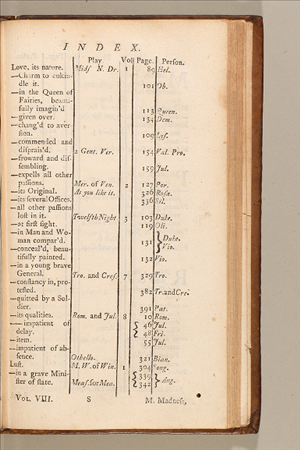 INDEX.
Play Vol Page. Person.
Love, its nature. Mids. N. Dr. 1 89 Hel.
—Charm to enkin-
dle it. 101 Ob.
—in the Queen of
Fairies, beauti-
fully imagin'd 113 Queen.
—given over. 134 Dem.
—chang'd to aver-
sion. 109 Lys.
—commended and
disprais'd. 2 Gent. Ver. 154 Val. Pro.
—froward and dis-
sembling. 159 Jul.
—expells all other
passions. Mer. of Ven. 2 127 Por.
—its Original. As you like it. 326 Rosa.
—its several Offices. 336 Sil.
—all other passions
lost in it. Twelfth Night 3 103 Duke.
—at first sight. 119 Oli.
—in Man and Wo-
man compar'd. 131 { Duke.
—conceal'd, beau- Vio.
tifully painted. 132 Vio.
—in a young brave
General. Tro. and Cres. 7 329 Tro.
—constancy in, pro-
tested. 382 Tr. and Cre.
—quitted by a Sol-
dier. 391 Pat.
—its qualities. Rom. and Jul. 8 10 Rom.
—impatient of { 46 Jul.
delay. { 48 Fri.
—item. 55 Jul.
—impatient of ab-
sence. Othello. 321 Bian.
Lust. M. W. of Win. 1 304 Song.
—in a grave Mini- { 339 }
ster of state. Meas. for Mea. { 342 } Ang.
VOL. VIII. S M. Madness,